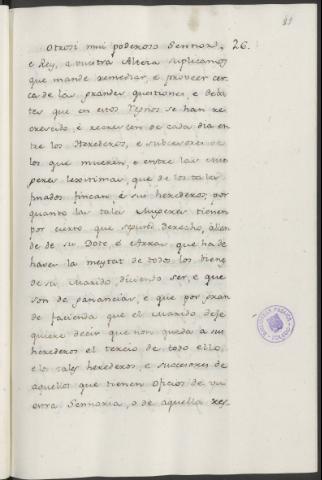 81
Otrosi mui poderoso Sennor, 26.
e Rey, a vuestra Alteza suplicamos
que mande remediar, e proveer cer-
ca de las grandes questiones, e deba-
tes que en estos Regnos se han re-
crescido, é recrescen de cada dia en-
tre los Herederos, e subcesores de
los que mueren, e entre las Mu-
geres lexitimas, que de los tales
finados fincan, é sus herederos, por
quanto las tales Mugeres tienen
por cierto, que segund derecho, allen-
de de su Dote, é Arras que ha de
haver la meytat de todos los bienes
de su Marido, diciendo ser, e que
son de ganancias, e que por gran-
de facienda que el Marido deje
quiere decir que non queda a sus
herederos el tercio de todo ello,
e los tales herederos, e succesores de
aquellos que tienen oficios de vu-
estra Sennoria, o de aquella res-